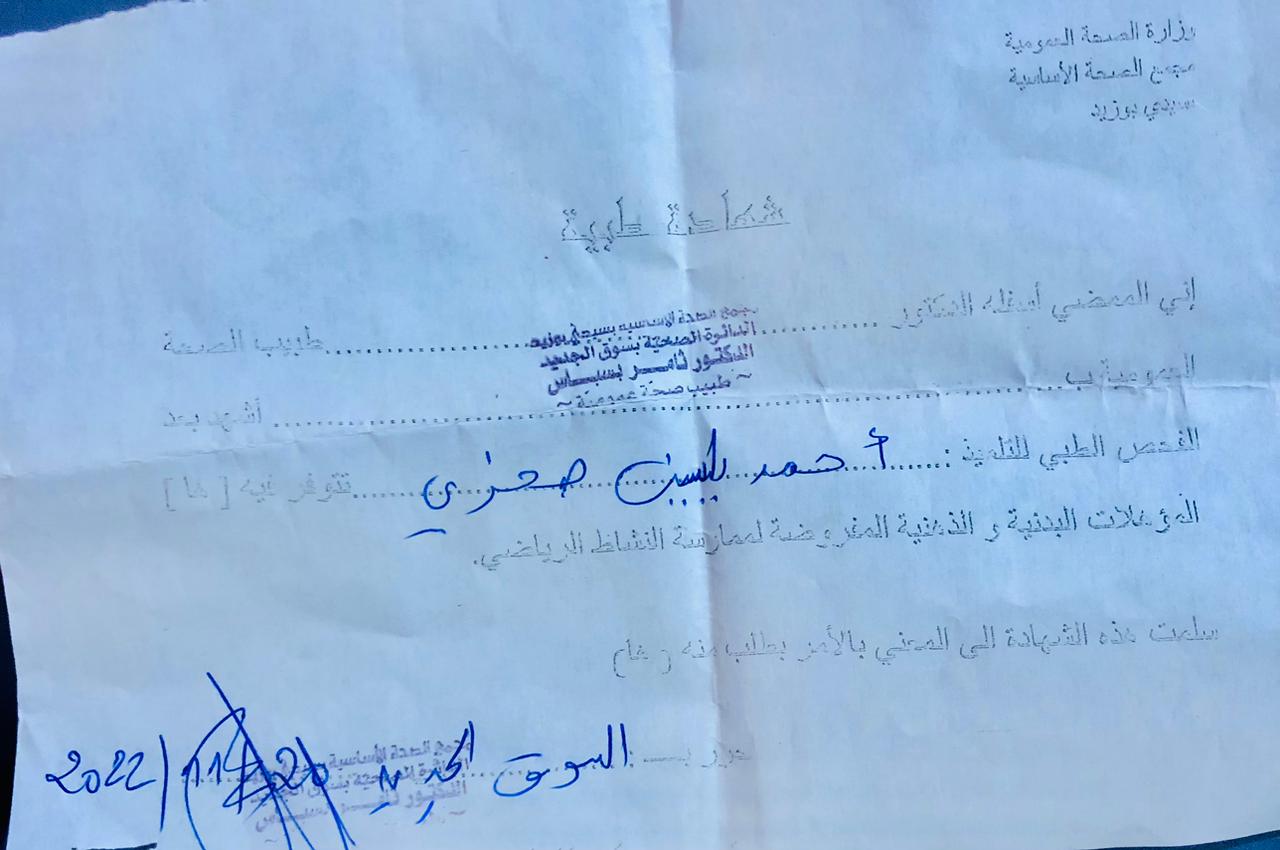 وزارة الصحة العمومية
مجمع الصحة الأساسية
سيدي بوزيد
شهادة طبية
إني الممضي أسفله الدكتور ........ طبيب الصحة
مجمع الصحة الأساسية بسيدي بوزيد
الدائرة الصحية بسوق الجديد
الدكتور ثامر بسباس
~ طبيب صحة عمومية ~
العمومية ب ........ أشهد بعد
الفحص الطبي للتلميذ : أحمد ياسين صحراوي ........ تتوفر فيه [ ها ]
المؤهلات البدنية و الذهنية المفروضة لممارسة النشاط الرياضي.
سلمت هذه الشهادة الى المعني بالأمر بطلب منه ( ها )
حرر بـ : السوق الجديد 2022/11/
مجمع الصحة الأساسية
الدائرة الصحية بسوق الجديد
الدكتور ثامر بسباس